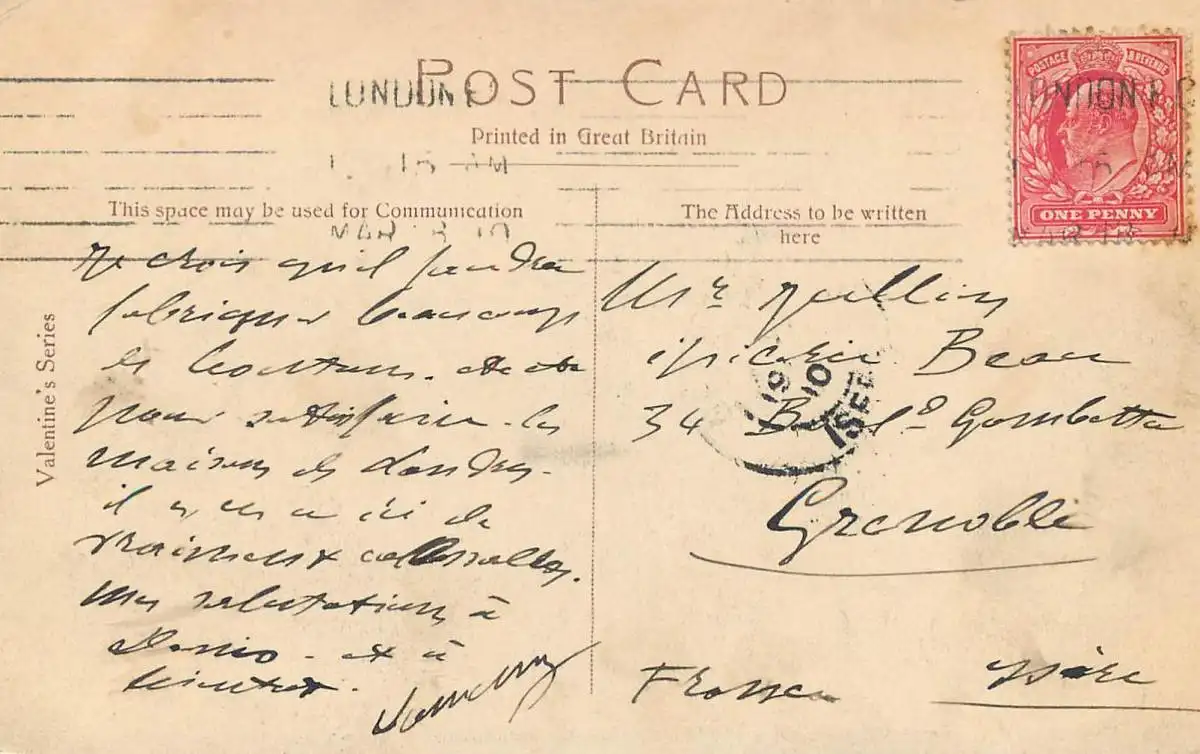 POST CARD
Printed in Great Britain
LONDON F
15 AM
MAR 8 10
POSTAGE & REVENUE
LONDON F
ONE PENNY
This space may be used for Communication
The Address to be written
here
Valentine's Series
Je crois qu'il faudra
fabriquer beaucoup
de
pour satisfaire les
maisons de Londres.
il y en a ici de
vraiment colossalles.
Mes salutations à
et à
Mr Jullien
épicerie Beau
34 Boul.d Gambetta
Grenoble
Isère
France
10